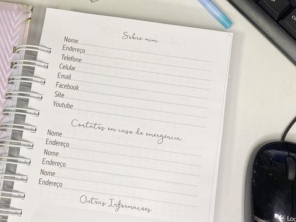 Sobre mim
Nome
Endereço
Telefone
Celular
Email
Facebook
Site
Youtube
Contatos em caso de emergência
Nome
Endereço
Nome
Endereço
Nome
Endereço
Outras Informações